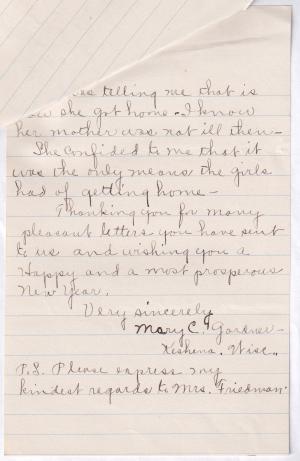 telling me that is
how she got home - I know
her mother was not ill then -
She confided to me that it
was the only means the girls
had of getting home -
Thanking you for many
pleasant letters you have sent
to us and wishing you a
Happy and a most prosperous
New Year.
Very sincerely
Mary C. Gardner
Keshena. Wisc.,
P.S. Please express my
kindest regards to Mrs. Friedman.